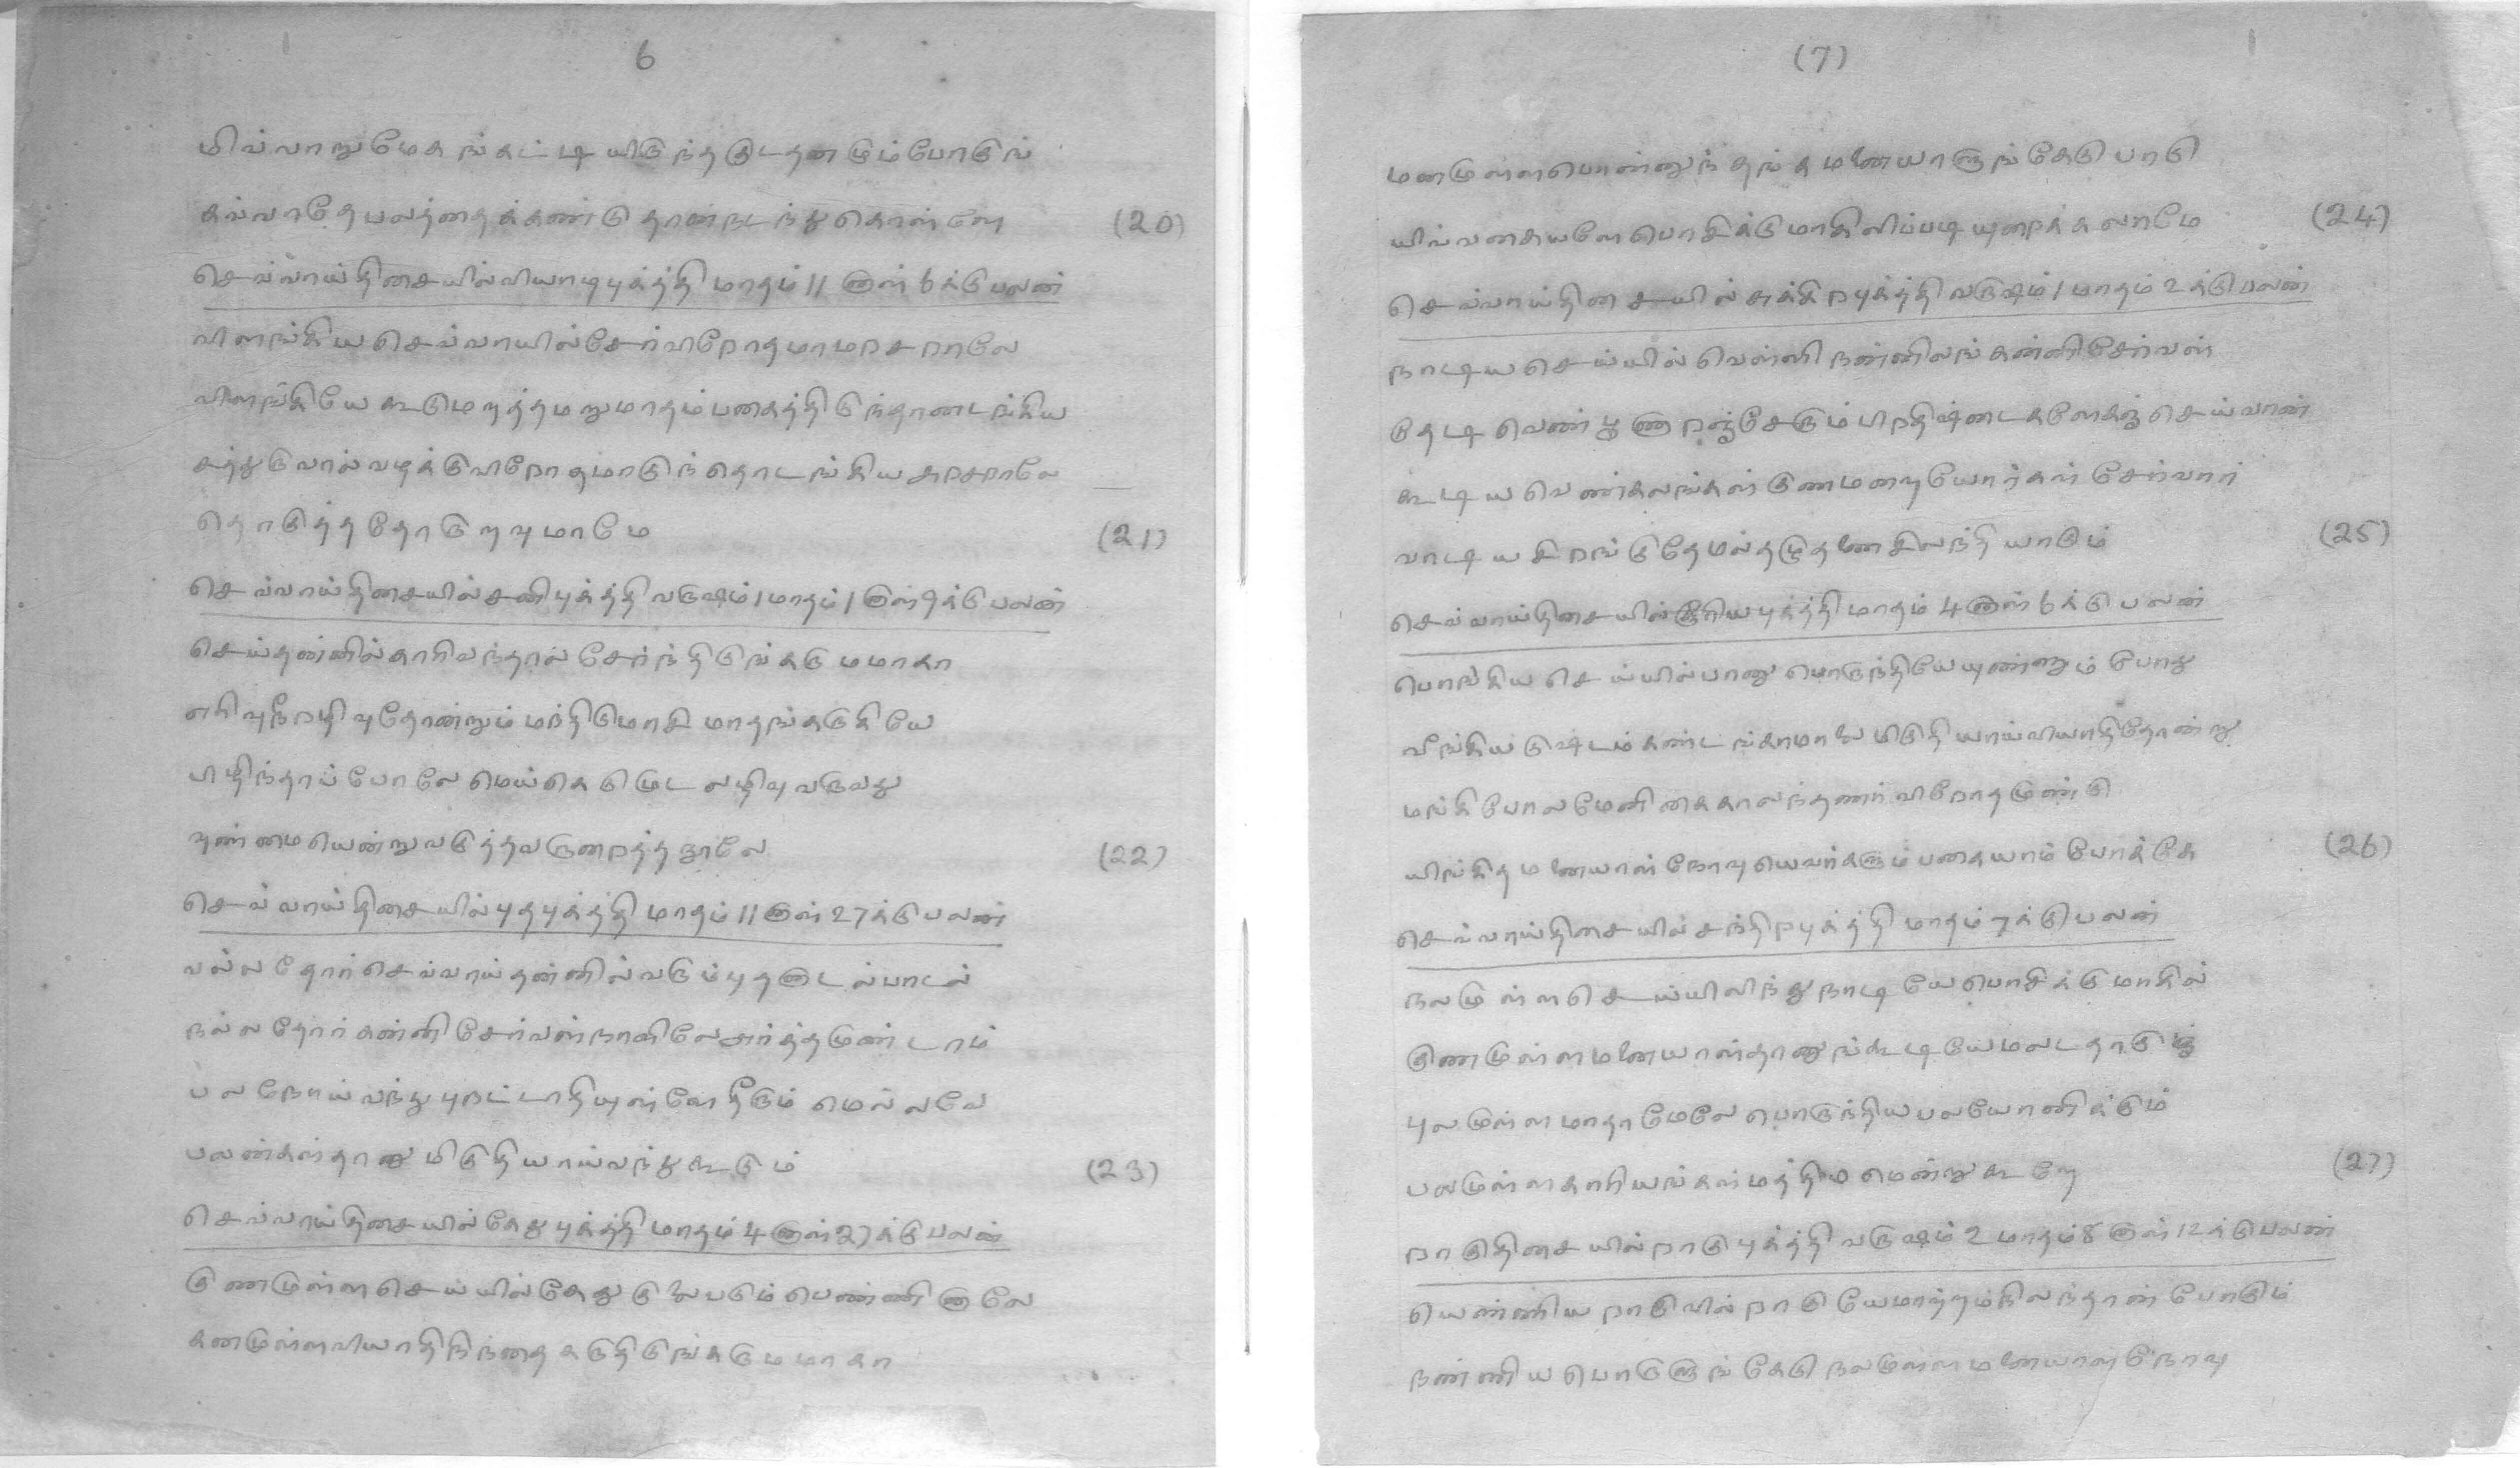 6
மிவ்வாறுமேகங்கட்டியிருந்தகுடதனமும்போகுங்
கவ்வாதேபலத்தைக்கண்டு தான்நடந்துகொள்ளே (20)
செவ்வாய்திசையில்வியாழபுக்த்தி மாதம் 11 நாள் 6க்கு பலன்
விளங்கியசெவ்வாயில்சேர்விறோதமாமறசறாலே
விளங்கியேகூடுமறுத்தமறுமாதம்பகைத்திடுந்தானடங்கிய
சத்துருவால்வழக்குவிறோதமாகுந்தொடங்கியஅறசறாலே
தொடுத்ததோருறவுமாமே (21)
செவ்வாய்திசையில்சனிபுக்த்தி வருஷம் 1 மாதம் 1 நாள் 9க்கு பலன்
செய்தன்னில்காரிவந்தால் சேர்ந்திடுங்கருமமாகா
எரிவுநீறழிவுதோண்றும் மந்திடுமாசி மாதங்கடுகியே
பிழிந்தாய்போலே மெய்கெடுமுடலழிவுவருவது
வுண்மையென்றுவடுத்தவருறைத்தநூலே (22)
செவ்வாய்திசையில்புதபுக்த்தி மாதம் 11 நாள் 27க்கு பலன்
வல்லதோர்செவ்வாய்தன்னில்வரும்புதனுடல்பாடல்
நல்லதோர்கன்னிசேர்வள்நாளிலேஅர்த்தமுண்டாம்
பலநோய்வந்துபுரட்டாதியுள்ளேதீரும் மெல்லவே
பலன்கள்தானுமிகுதியாய்வந்துகூடும் (23)
செவ்வாய்திசையில்கேதுபுக்த்தி மாதம் 4 நாள் 27க்கு பலன்
குணமுள்ளசெய்யில்கேதுகுலைபடும்பெண்ணினாலே
கனமுள்ளவியாதிநிந்தைகருதிடுங்கருமமாகா
(7)
மனமுள்ளபொன்னுந்தங்கமனையாளுங்கேடுபாடு
யிவ்வகையளேபொசிக்குமாகிலிப்படியுறைக்கலாமே (24)
செவ்வாய்தினசயில்சுக்கிறபுக்த்தி வருஷம் 1 மாதம் 2க்கு பலன்
நாடியசெய்யில்வெள்ளிநன்னிலங்கன்னிசேர்வள்
தேடிவெண்பூணாறஞ்சேரும்பிறதிஷ்டைகளேகஞ்செய்வான்
கூடியவெண்கலங்கள்குணமறையோர்கள்சேர்வார்
வாடியசிறங்குதேமல்தழுதணைசிலந்தியாகும் (25)
செவ்வாய்திசையில்சூரியபுக்த்தி மாதம் 4 நாள் 6க்கு பலன்
பொங்கியசெய்யில்பானுபொருந்தியேயுண்ணும்போது
வீங்கியகுஷ்டம்கண்டங்காமாலைமிகுதியாய்வியாதிதோண்று
மங்கிபோலமேனிகைகாலந்தணர்விறோதமுண்டு
யிங்கிதமனையாள்நோவுயெவர்களும்பகையாம்போக்கே (26)
செவ்வாய்திசையில்சந்திறபுக்த்தி மாதம் 7க்கு பலன்
நலமுள்ளசெய்யிலிந்துநாடியேபொசிக்குமாகில்
குணமுள்ளமனையாள்தானுங்கூடியேமலடதாகு
புலமுள்ளமாதாமேலேபொருந்தியபலயோனிக்கும்
பலமுள்ளகாரியங்கள்மத்திமமென்றுகூறே (27)
றாகுதிசையில்றாகுபுக்த்தி வருஷம் 2 மாதம் 8 நாள் 12க்கு பலன்
யெண்ணியறாகுவில்றாகுயேமாற்றும்நிலந்தான்போகும்
நண்ணியபொருளுங்கேடுநலமுள்ளமனையாள்நோவு